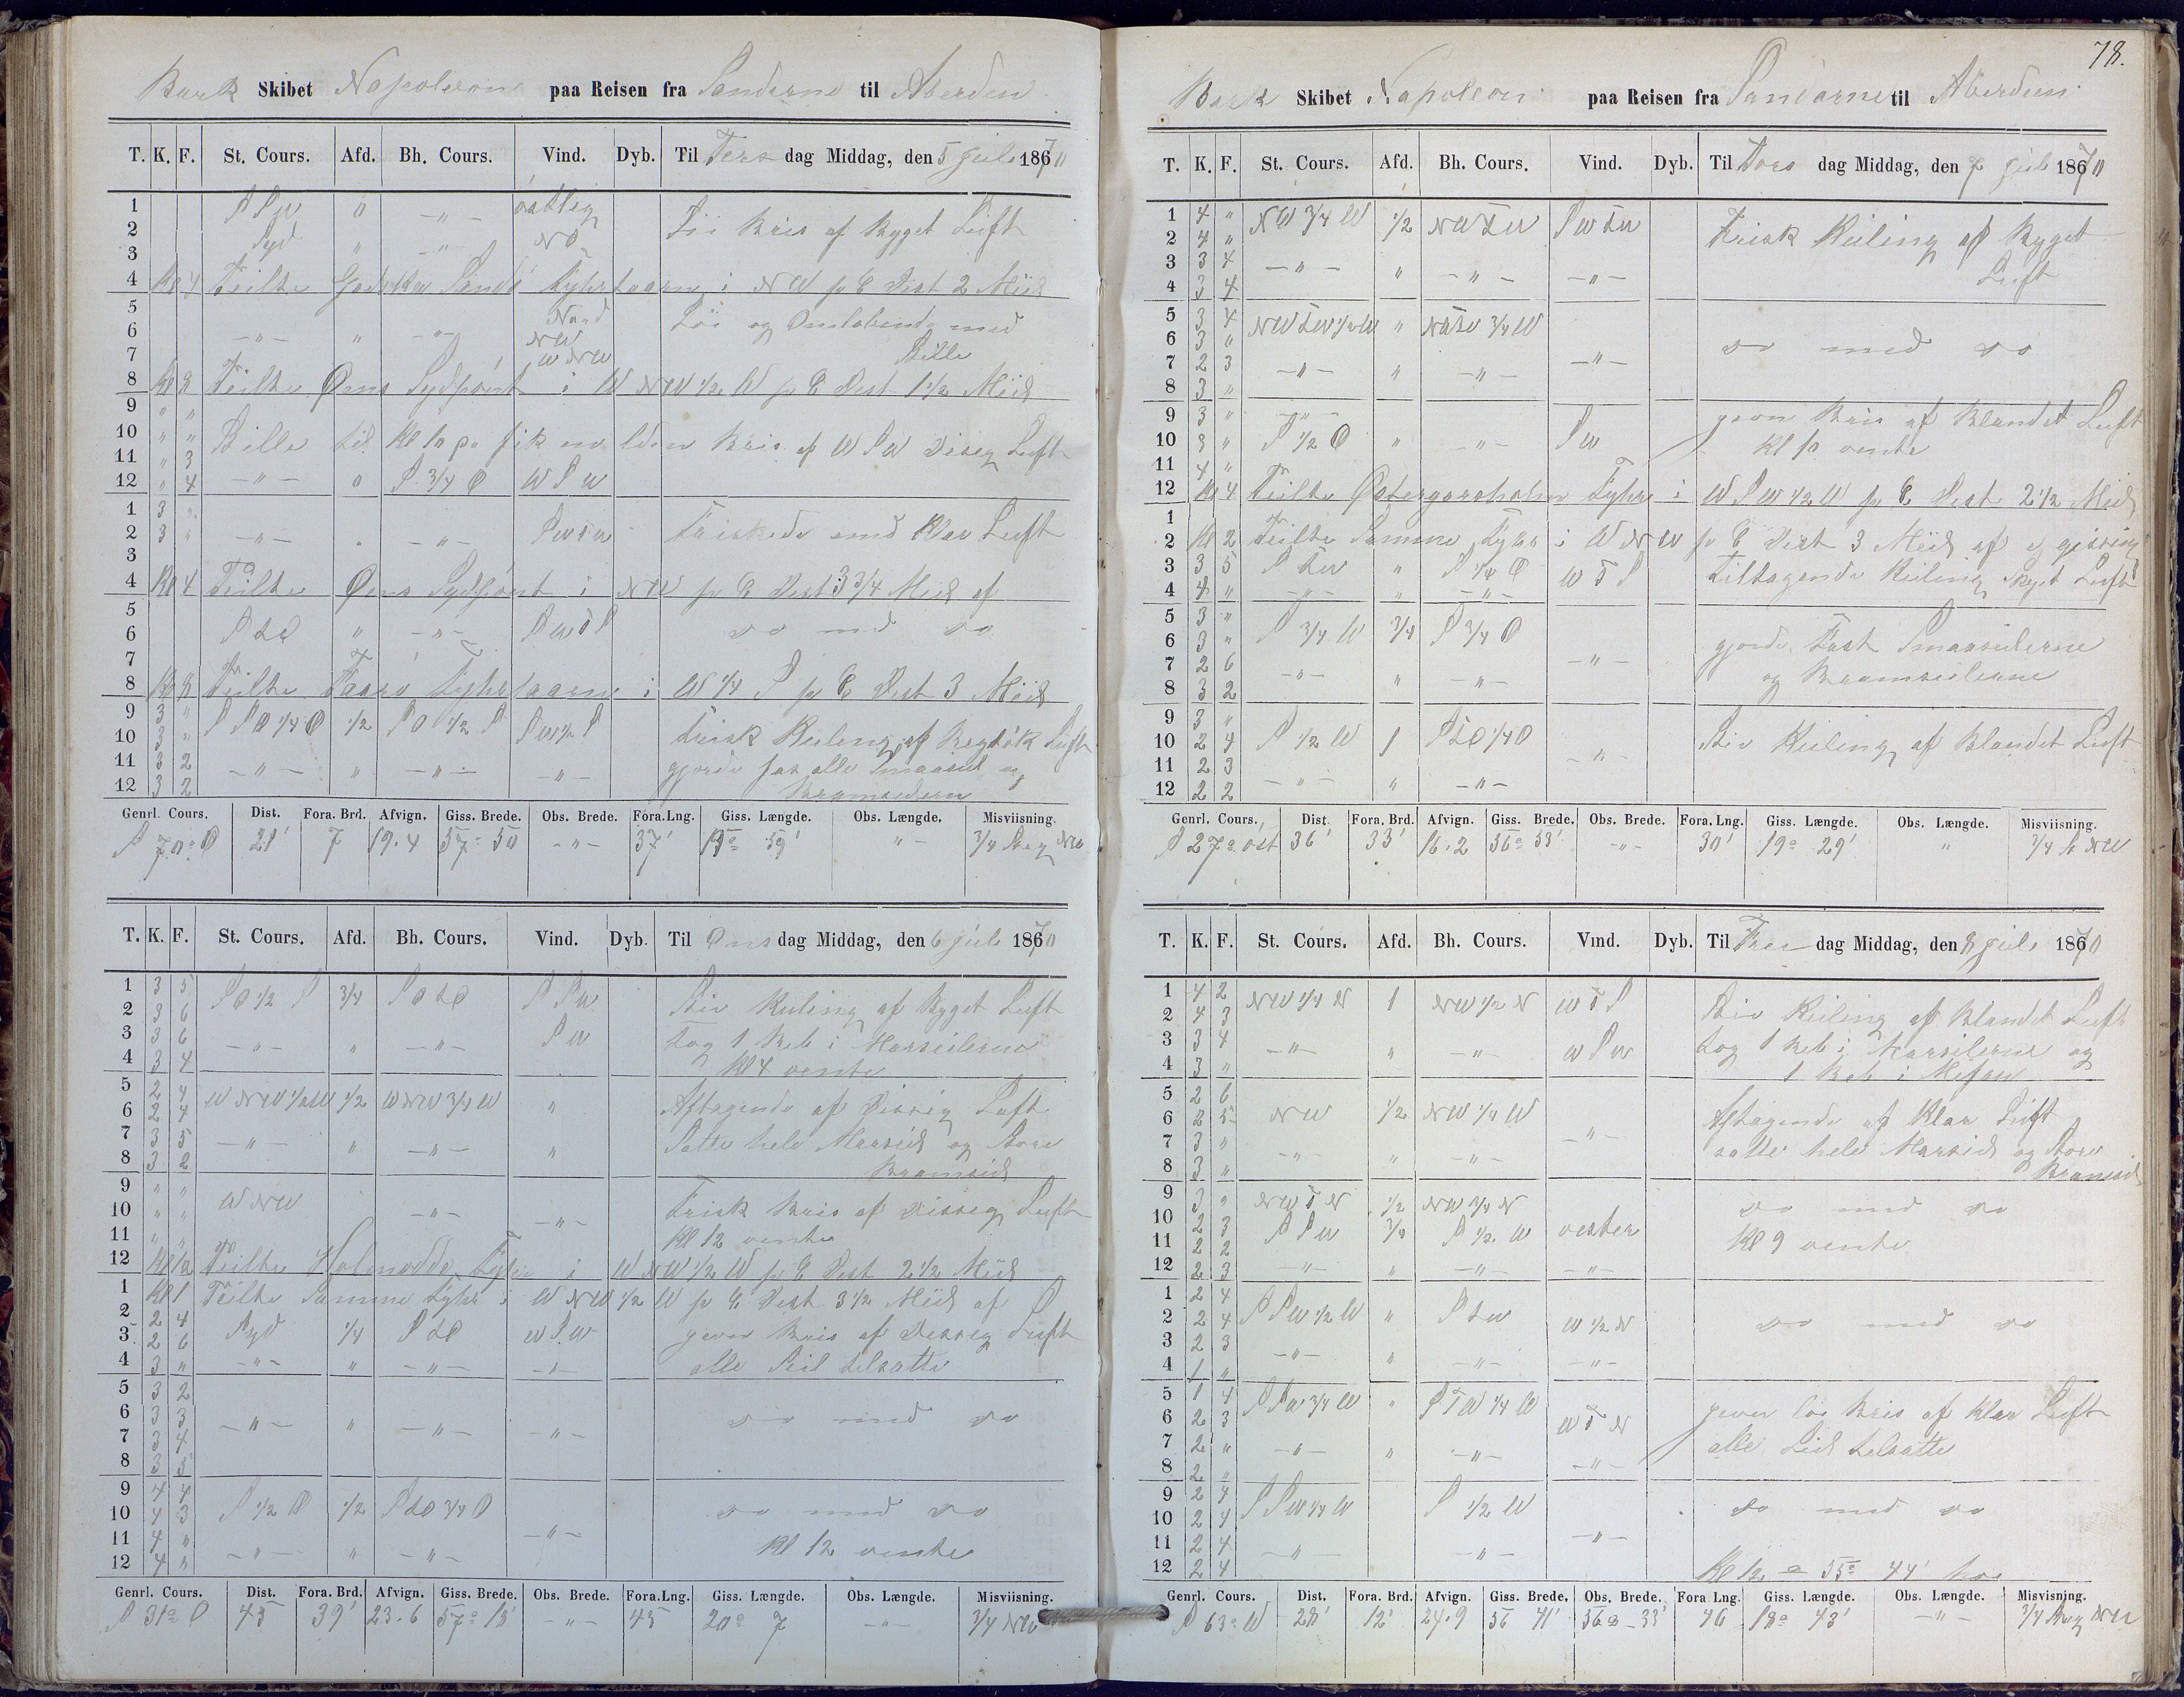 Bark Skibet Napoleon paa Reisen fra Sandarne til Aberden
T. K. F. St. Cours. Afd. Bh. Cours. Vind. Dyb. Til Tors dag Middag, den 5 Juli 1870
1 S S W " — " — östlig
2 Syd " — " — NO Löi Bris af Byget Luft
3
4 Kl 4 Peilte Godska Sandö Fyhrtaarn i NW pr C Dist 2 Miil
5 Nord Löi og Omlöbende med
6 — " — " — " — NW Stille
7 WNW
8 Kl 8 Peilte Øens Sydpönt i WNW 1/2 W pr C Dist 1 1/2 Miil
9 " "
10 " " Stille til Kl 10 fik en liden Bris af WSW Diseg Luft
11 " 3
12 " 4 — " — " S 3/4 O WSW
1 3 "
2 3 " — " — " — " — SWTW Friskede med Klar Luft
3
4 Kl 4 Peilte Øens Sydpönt i NW pr C Dist 3 3/4 Miil af
5
6 S t O " — " — SWTS do med do
7
8 Kl 8 Peilte Faarö Fyhrtaarn i W 1/4 S pr C Dist 3 Miil
9 3 " S SO 1/4 O 1/2 SO 1/2 S SW 1/2 S Frisk Kuling af Regtök Luft
10 3 "
11 3 2 — " — " — " — — " — gjorde fas alle Smaaseil og
12 3 2 Bramseilern
Genrl. Cours. Dist. Fora. Brd. Afvign. Giss. Brede. Obs. Brede. Fora.Lng. Giss. Længde. Obs. Længde. Misviisning.
S 70° O 21' 7 19.4 57° 50 — " — 37' 19° 59' " — 3/4 Streg NW
T. K. F. St. Cours. Afd. Bh. Cours. Vind. Dyb. Til Ons dag Middag, den 6 Juli 1870
1 3 5 SO 1/2 S 3/4 SO t O S S W Stiv Kuling af Byget Luft
2 3 6
3 3 6 — " — " — " — SW tog 1 Reb i Marseilerne
4 3 4 Kl 4 vente
5 2 4 WNW 1/2 W 1/2 WNW 3/4 W " Aftagende af Dissig Luft
6 2 4
7 3 5 — " — " — " — " Satte hele Marseil og Store
8 3 2 Bramseil
9 " " WNW Frisk Bris af Dissig Luft
10 " " — " — — " —
11 " " Kl 12 vente
12 Kl 12 Peilte Holmudde Fyhr i WNW 1/2 W pr C Dist 2 1/2 Miil
1 Kl 1 Peilte Samme Fyhr i WNW 1/2 W pr C Dist 3 1/2 Miil af
2 2 4
3 2 6 Syd 1/4 S t O WSW jevn Bris af Dissig Luft
4 3 " — " — " — " — — " — alle Seil tilsatte
5 3 2
6 3 3 — " — " — " — — " — do med do
7 3 4
8 3 5
9 4 4
10 4 3 S 1/2 O 1/2 S t O 3/4 O do med do
11 4 " — " —
12 4 " — " — " — " — Kl 12 vente
Genrl. Cours. Dist. Fora. Brd. Afvign. Giss. Brede. Obs. Brede. Fora.Lng. Giss. Længde. Obs. Længde. Misviisning.
S 31° O 45 39' 23.6 57° 15' — " — 45 20° 7 — " — 3/4 NW
78.
Bark Skibet Napoleon paa Reisen fra Sandarne til Aberdeen
T. K. F. St. Cours. Afd. Bh. Cours. Vind. Dyb. Til Tors dag Middag, den 7 Juli 1870
1 4 " NW 3/4 W 1/2 NWTW SWTW Frisk Kuling af Byget
2 4 " Luft
3 3 4 — " — " — " — — " —
4 3 4
5 3 4 NWTW 1/2 W " NWTW 3/4 W
6 3 " do med do
7 2 3 — " — " — " — — " —
8 3 "
9 3 " — " — jevn Bris af Blandet Luft
10 3 " S 1/2 O " — " — SW Kl 10 vente
11 4 "
12 Kl 4 Peilte Østergarsholm Fyhr i WSW 1/2 W pr C Dist 2 1/2 Miil
1
2 Kl 2 Peilte Samme Fyhr i WNW pr C Dist 3 Miil af gissing
3 3 5 S t W " S 1/4 O WTS tiltagende Kuling Skyet Luft
4 4 " — " — " — " —
5 3 "
6 3 " S 3/4 W 3/4 S 3/4 O gjorde Fast Smaaseilerne
7 2 6 — " — og Bramseilerne
8 3 2 — " — " — " —
9 3 "
10 2 4 S 1/2 W 1 S t O 1/4 O Stiv Kuling af Blandet Luft
11 2 3 — " —
12 2 2 — " — " — " —
Genrl. Cours. Dist. Fora. Brd. Afvign. Giss. Brede. Obs. Brede. Fora.Lng. Giss. Længde. Obs. Længde. Misviisning.
S 27° ost 36' 33' 16.2 56° 53' — " — 30' 19° 29' " 3/4 S NW
T. K. F. St. Cours. Afd. Bh. Cours. Vind. Dyb. Til Fre dag Middag, den 8 Juli 1870
1 4 2 NW 1/4 N 1 NW 1/2 N WTS Stiv Kuling af Blandet Luft
2 4 3
3 3 4 — " — " — " — WSW tog 1 Reb i Marseilerne og
4 3 " 1 Reb i Mesan
5 2 6
6 2 5 NW 1/2 NW 1/4 W Aftagende af Klar Luft
7 3 " — " — satte hele Marseil og Store
8 3 " — " — " — " — Bramseil
9 3 " NWTN 1/2 NW 3/4 N do med do
10 2 3 S S W 3/4 S 1/2 W vester Kl 9 vente
11 2 2
12 2 3 — " — " — " — — " —
1 2 4
2 2 4 S S W 1/2 W " S t W W 1/2 N do med do
3 2 3
4 1 " — " — " — " — — " —
5 1 4 S S W 3/4 W " S T W 1/4 W jevn löi Bris af Klar Luft
6 2 3 WTN
7 2 " — " — " — " — alle Seil tilsatte
8 2 " — " —
9 2 4 S S W 1/4 W S 1/2 W do med do
10 2 4
11 2 4 — " — — " — — " —
12 2 4 Kl 12 55° 44'
Genrl. Cours. Dist. Fora. Brd. Afvign. Giss. Brede. Obs. Brede. Fora Lng. Giss. Længde. Obs. Længde. Misvisning.
S 63° W 28' 12' 24.9 56 41' 56° 33' 46 18° 43' — " — 3/4 Streg NW